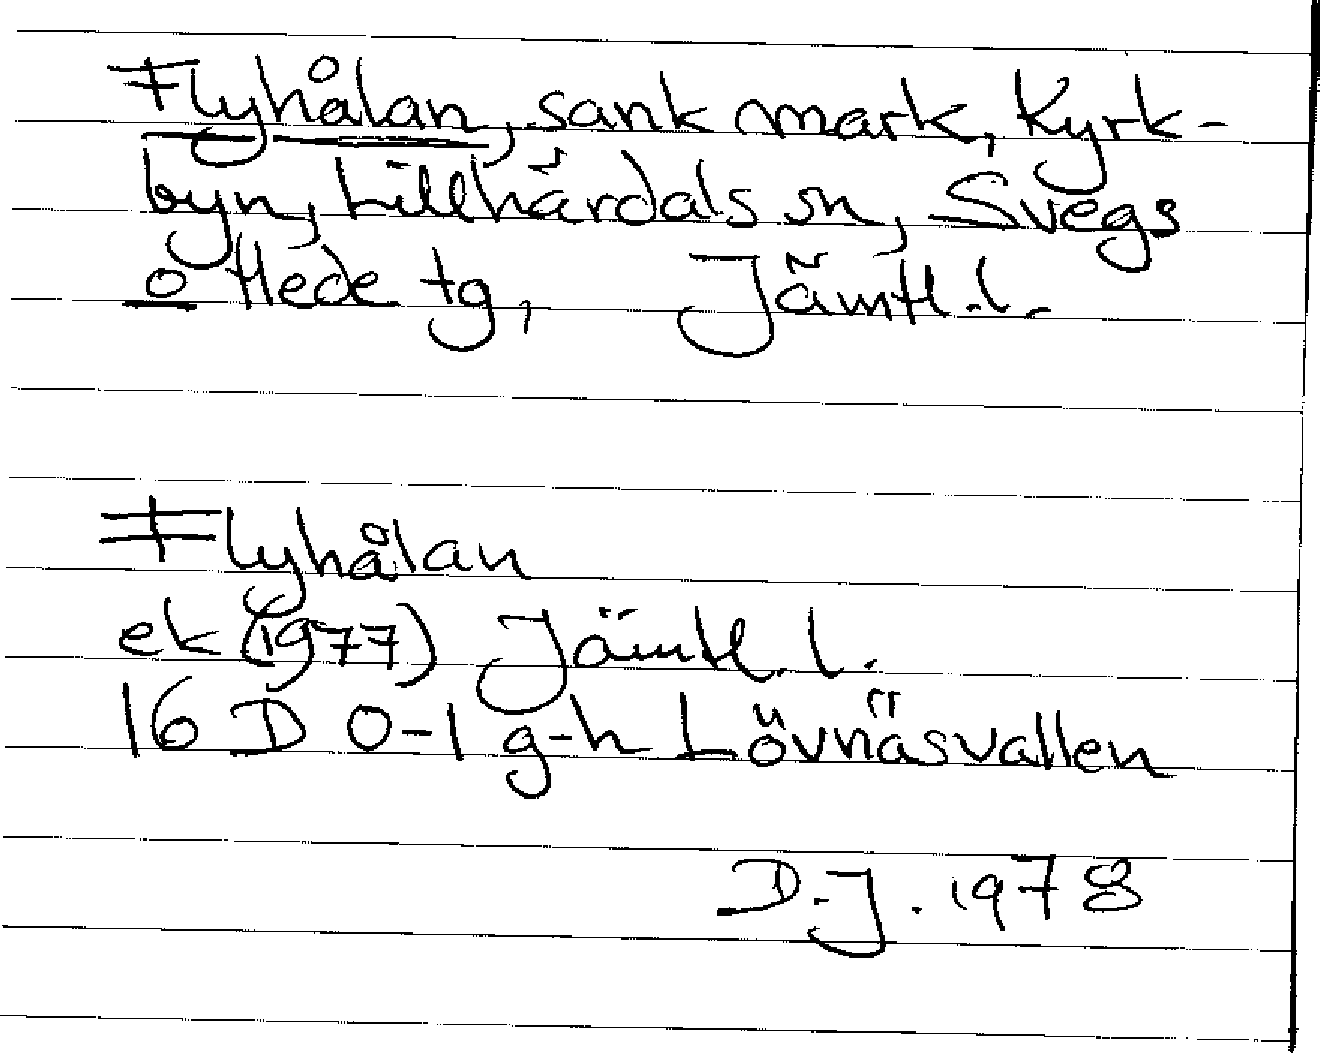 Flyhålan, sank mark, Kyrk-
byn, Lillhärdals sn, Svegs
o Hede tg, Jämtl.l.
Flyhålan
ek (1977) Jämtl.l.
16 D 0-1 g-h Lövnäsvallen
D.J. 1978